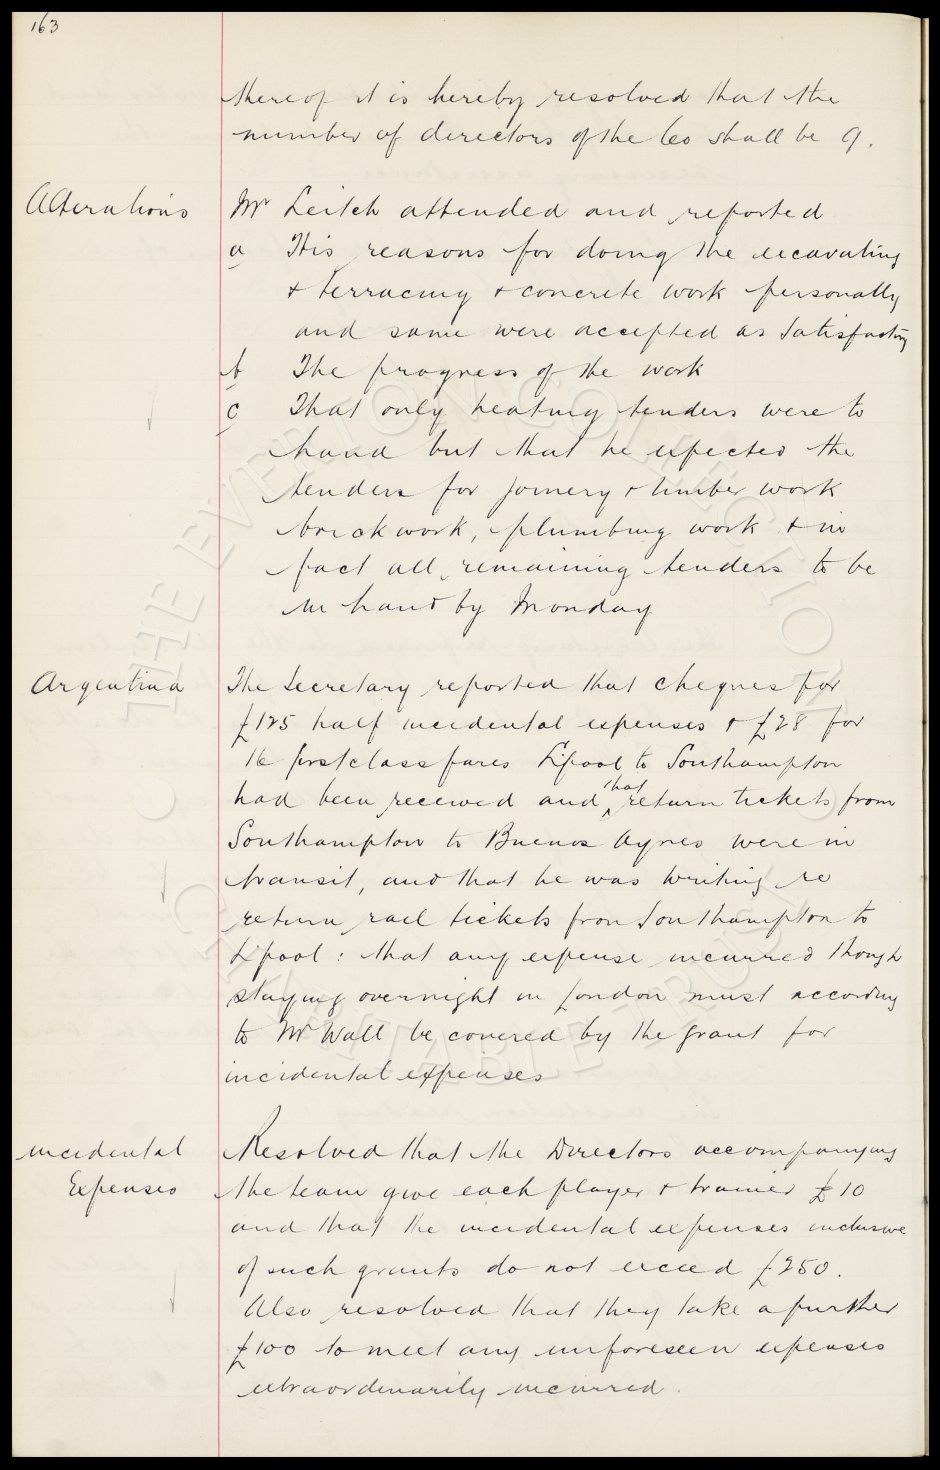 163
thereof it is hereby resolved that the
number of directors of the Co shall be 9.
Alterations
Mr Leitch attended and reported
a His reasons for doing the excavating
+ terracing + concrete work personally
and same were accepted as satisfactory
b The progress of the work
c That only heating tenders were to
hand but that he expected the
tenders for joinery + timber work
brickwork, plumbing work + in
fact all remaining tenders to be
in hand by Monday
Argentina
The Secretary reported that cheques for
£125 half incidental expenses + £28 for
16 first class fares L'pool to Southampton
had been received and that return tickets from
Southampton to Buenos Ayres were in
transit, and that he was writing re
return rail tickets from Southampton to
L'pool: that any expense incurred though
staying overnight in London must according
to Mr Wall be covered by the grant for
incidental expenses
Incidental
Expenses
Resolved that the Directors accompanying
the team give each player + trainer £10
and that the incidental expenses inclusive
of such grants do not exceed £250.
Also resolved that they take a further
£100 to meet any unforeseen expenses
extraordinarily incurred.
THE EVERTON COLLECTION